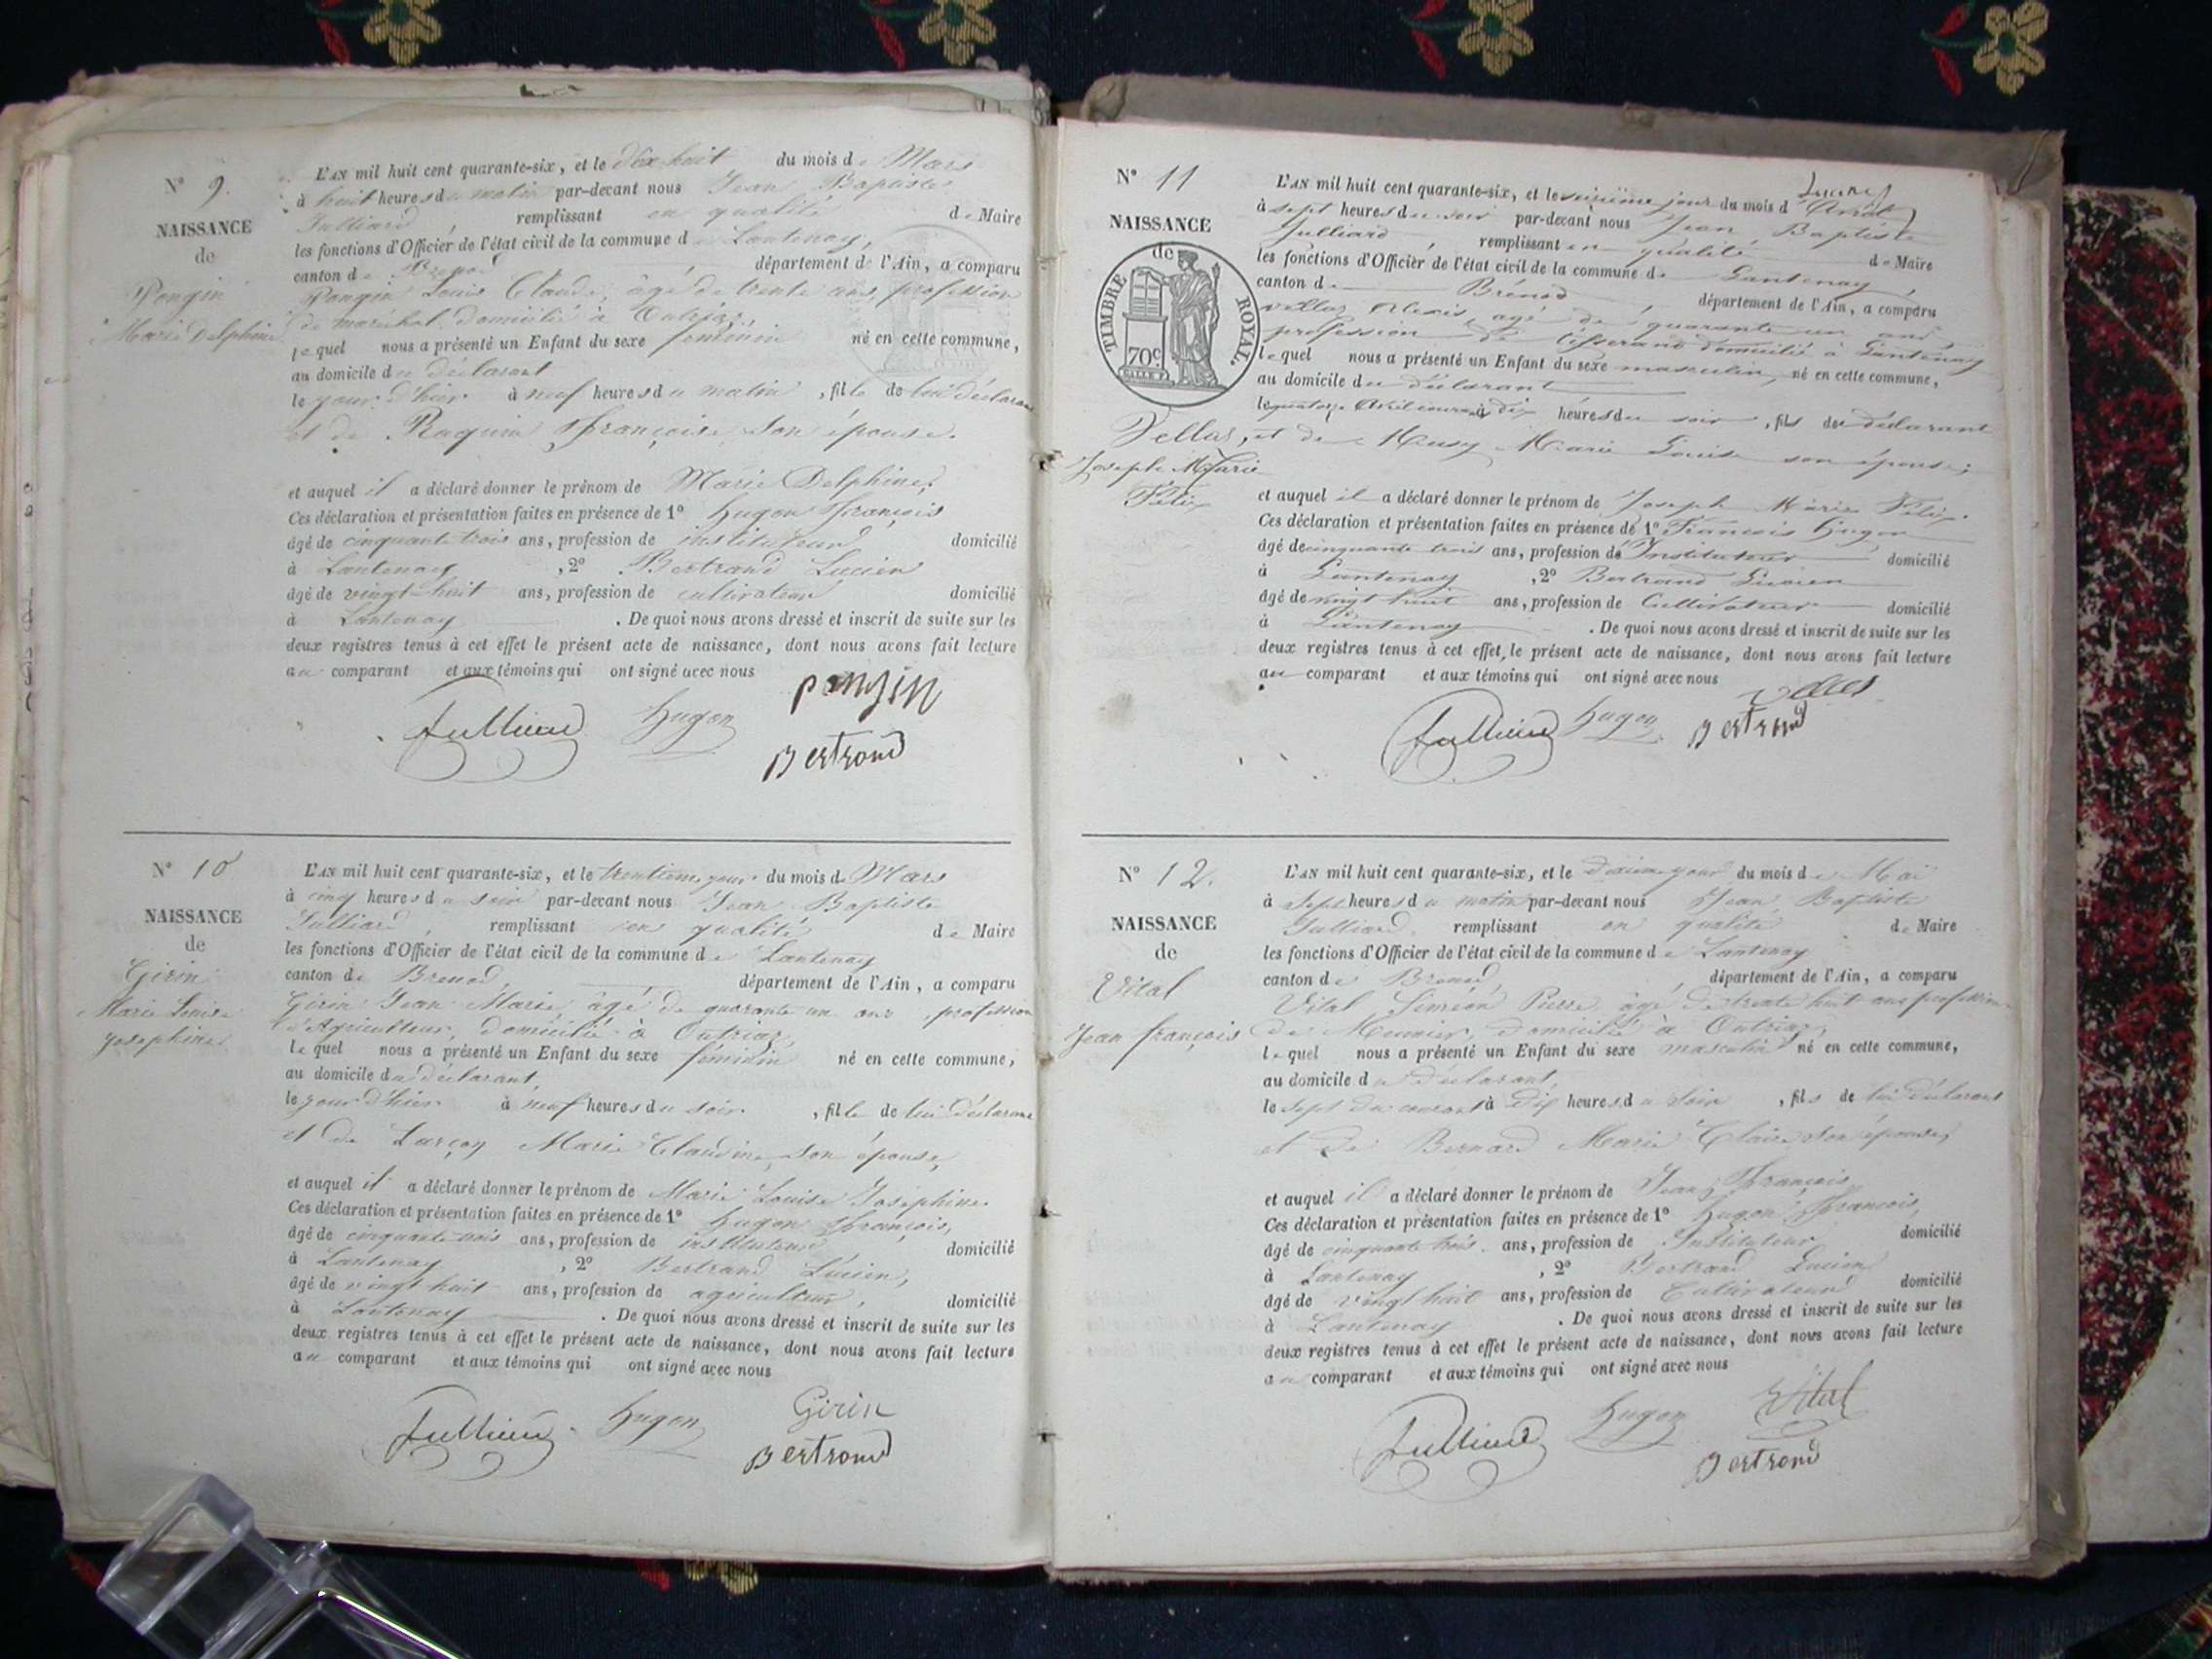 N° 9.
NAISSANCE
de
Pongin
Marie Delphine
L'AN mil huit cent quarante-six, et le dix huit du mois de Mars
à huit heures du matin par-devant nous Jean Baptiste
Julliard, remplissant en qualité de Maire
les fonctions d'Officier de l'état civil de la commune de Lantenay,
canton de Brenod, département de l'Ain, a comparu
Pongin Louis Claude, âgé de trente ans, profession
de maréchal domicilié à Outriaz,
lequel nous a présenté un Enfant du sexe féminin né en cette commune,
au domicile du déclarant
le jour d'hier à neuf heures du matin, fille de lui déclarant
et de Raquin Françoise son épouse.
et auquel il a déclaré donner le prénom de Marie Delphine,
Ces déclaration et présentation faites en présence de 1° Hugon François
âgé de cinquante trois ans, profession de instituteur domicilié
à Lantenay, 2° Bertrand Lucien
âgé de vingt huit ans, profession de cultivateur domicilié
à Lantenay. De quoi nous avons dressé et inscrit de suite sur les
deux registres tenus à cet effet le présent acte de naissance, dont nous avons fait lecture
au comparant et aux témoins qui ont signé avec nous
pongin
Julliard Hugon
Bertrand
N° 10
NAISSANCE
de
Girin
Marie Louise
Josephine
L'AN mil huit cent quarante-six, et le trentieme jour du mois de Mars
à cinq heures du soir par-devant nous Jean Baptiste
Julliard, remplissant en qualité de Maire
les fonctions d'Officier de l'état civil de la commune de Lantenay
canton de Brenod, département de l'Ain, a comparu
Girin Jean Marie, âgé de quarante un ans, profession
d'Agriculteur, domicilié à Outriaz,
lequel nous a présenté un Enfant du sexe féminin né en cette commune,
au domicile du déclarant,
le jour d'hier à neuf heures du soir, fille de lui déclarant
et de Larçon Marie Claudine, son épouse,
et auquel il a déclaré donner le prénom de Marie Louise Joséphine
Ces déclaration et présentation faites en présence de 1° Hugon François,
âgé de cinquante trois ans, profession de instituteur domicilié
à Lantenay, 2° Bertrand Lucien,
âgé de vingt huit ans, profession de agriculteur, domicilié
à Lantenay. De quoi nous avons dressé et inscrit de suite sur les
deux registres tenus à cet effet le présent acte de naissance, dont nous avons fait lecture
au comparant et aux témoins qui ont signé avec nous
Julliard Hugon Girin
Bertrand
N° 11
NAISSANCE
de
TIMBRE ROYAL.
70c.
Vellas,
Joseph Marie
Félix
L'AN mil huit cent quarante-six, et le seizième jour du mois d'Avril
à sept heures du soir par-devant nous Jean Baptiste
Julliard, remplissant en qualité de Maire
les fonctions d'Officier de l'état civil de la commune de Lantenay,
canton de Brénod, département de l'Ain, a comparu
Vellas Alexis, agé de quarante un ans,
profession de tisserand domicilié à Lantenay
lequel nous a présenté un Enfant du sexe masculin, né en cette commune,
au domicile du déclarant
le quatorze Avril courant à dix heures du soir, fils du déclarant
et de Marie Louise son épouse;
et auquel il a déclaré donner le prénom de Joseph Marie Félix.
Ces déclaration et présentation faites en présence de 1° François Hugon
âgé de cinquante trois ans, profession de Instituteur domicilié
à Lantenay, 2° Bertrand Lucien
âgé de vingt huit ans, profession de Cultivateur domicilié
à Lantenay. De quoi nous avons dressé et inscrit de suite sur les
deux registres tenus à cet effet, le présent acte de naissance, dont nous avons fait lecture
au comparant et aux témoins qui ont signé avec nous
Vellas
Julliard Hugon Bertrand
N° 12.
NAISSANCE
de
Vital
Jean françois
L'AN mil huit cent quarante-six, et le dixième jour du mois de Mai
à sept heures du matin par-devant nous Jean Baptiste
Julliard remplissant en qualité de Maire
les fonctions d'Officier de l'état civil de la commune de Lantenay
canton de Brenod, département de l'Ain, a comparu
Vital Siméon Pierre, âgé de trente huit ans profession
de Meunier, domicilié à Outriaz,
lequel nous a présenté un Enfant du sexe masculin né en cette commune,
au domicile du déclarant,
le sept du courant à dix heures du soir, fils de lui déclarant
et de Bernard Marie Claire son épouse,
et auquel il a déclaré donner le prénom de Jean François
Ces déclaration et présentation faites en présence de 1° Hugon François,
âgé de cinquante trois ans, profession de Instituteur domicilié
à Lantenay, 2° Bertrand Lucien
âgé de vingt huit ans, profession de Cultivateur domicilié
à Lantenay. De quoi nous avons dressé et inscrit de suite sur les
deux registres tenus à cet effet le présent acte de naissance, dont nous avons fait lecture
au comparant et aux témoins qui ont signé avec nous
Julliard Hugon Vital
Bertrand